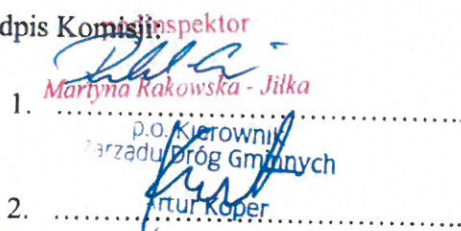 dpis Komisji:
podinspektor
Martyna Rakowska - Jiłka
1. ........................................
p.o. Kierownik
Zarządu Dróg Gminnych
Artur Koper
2. ........................................